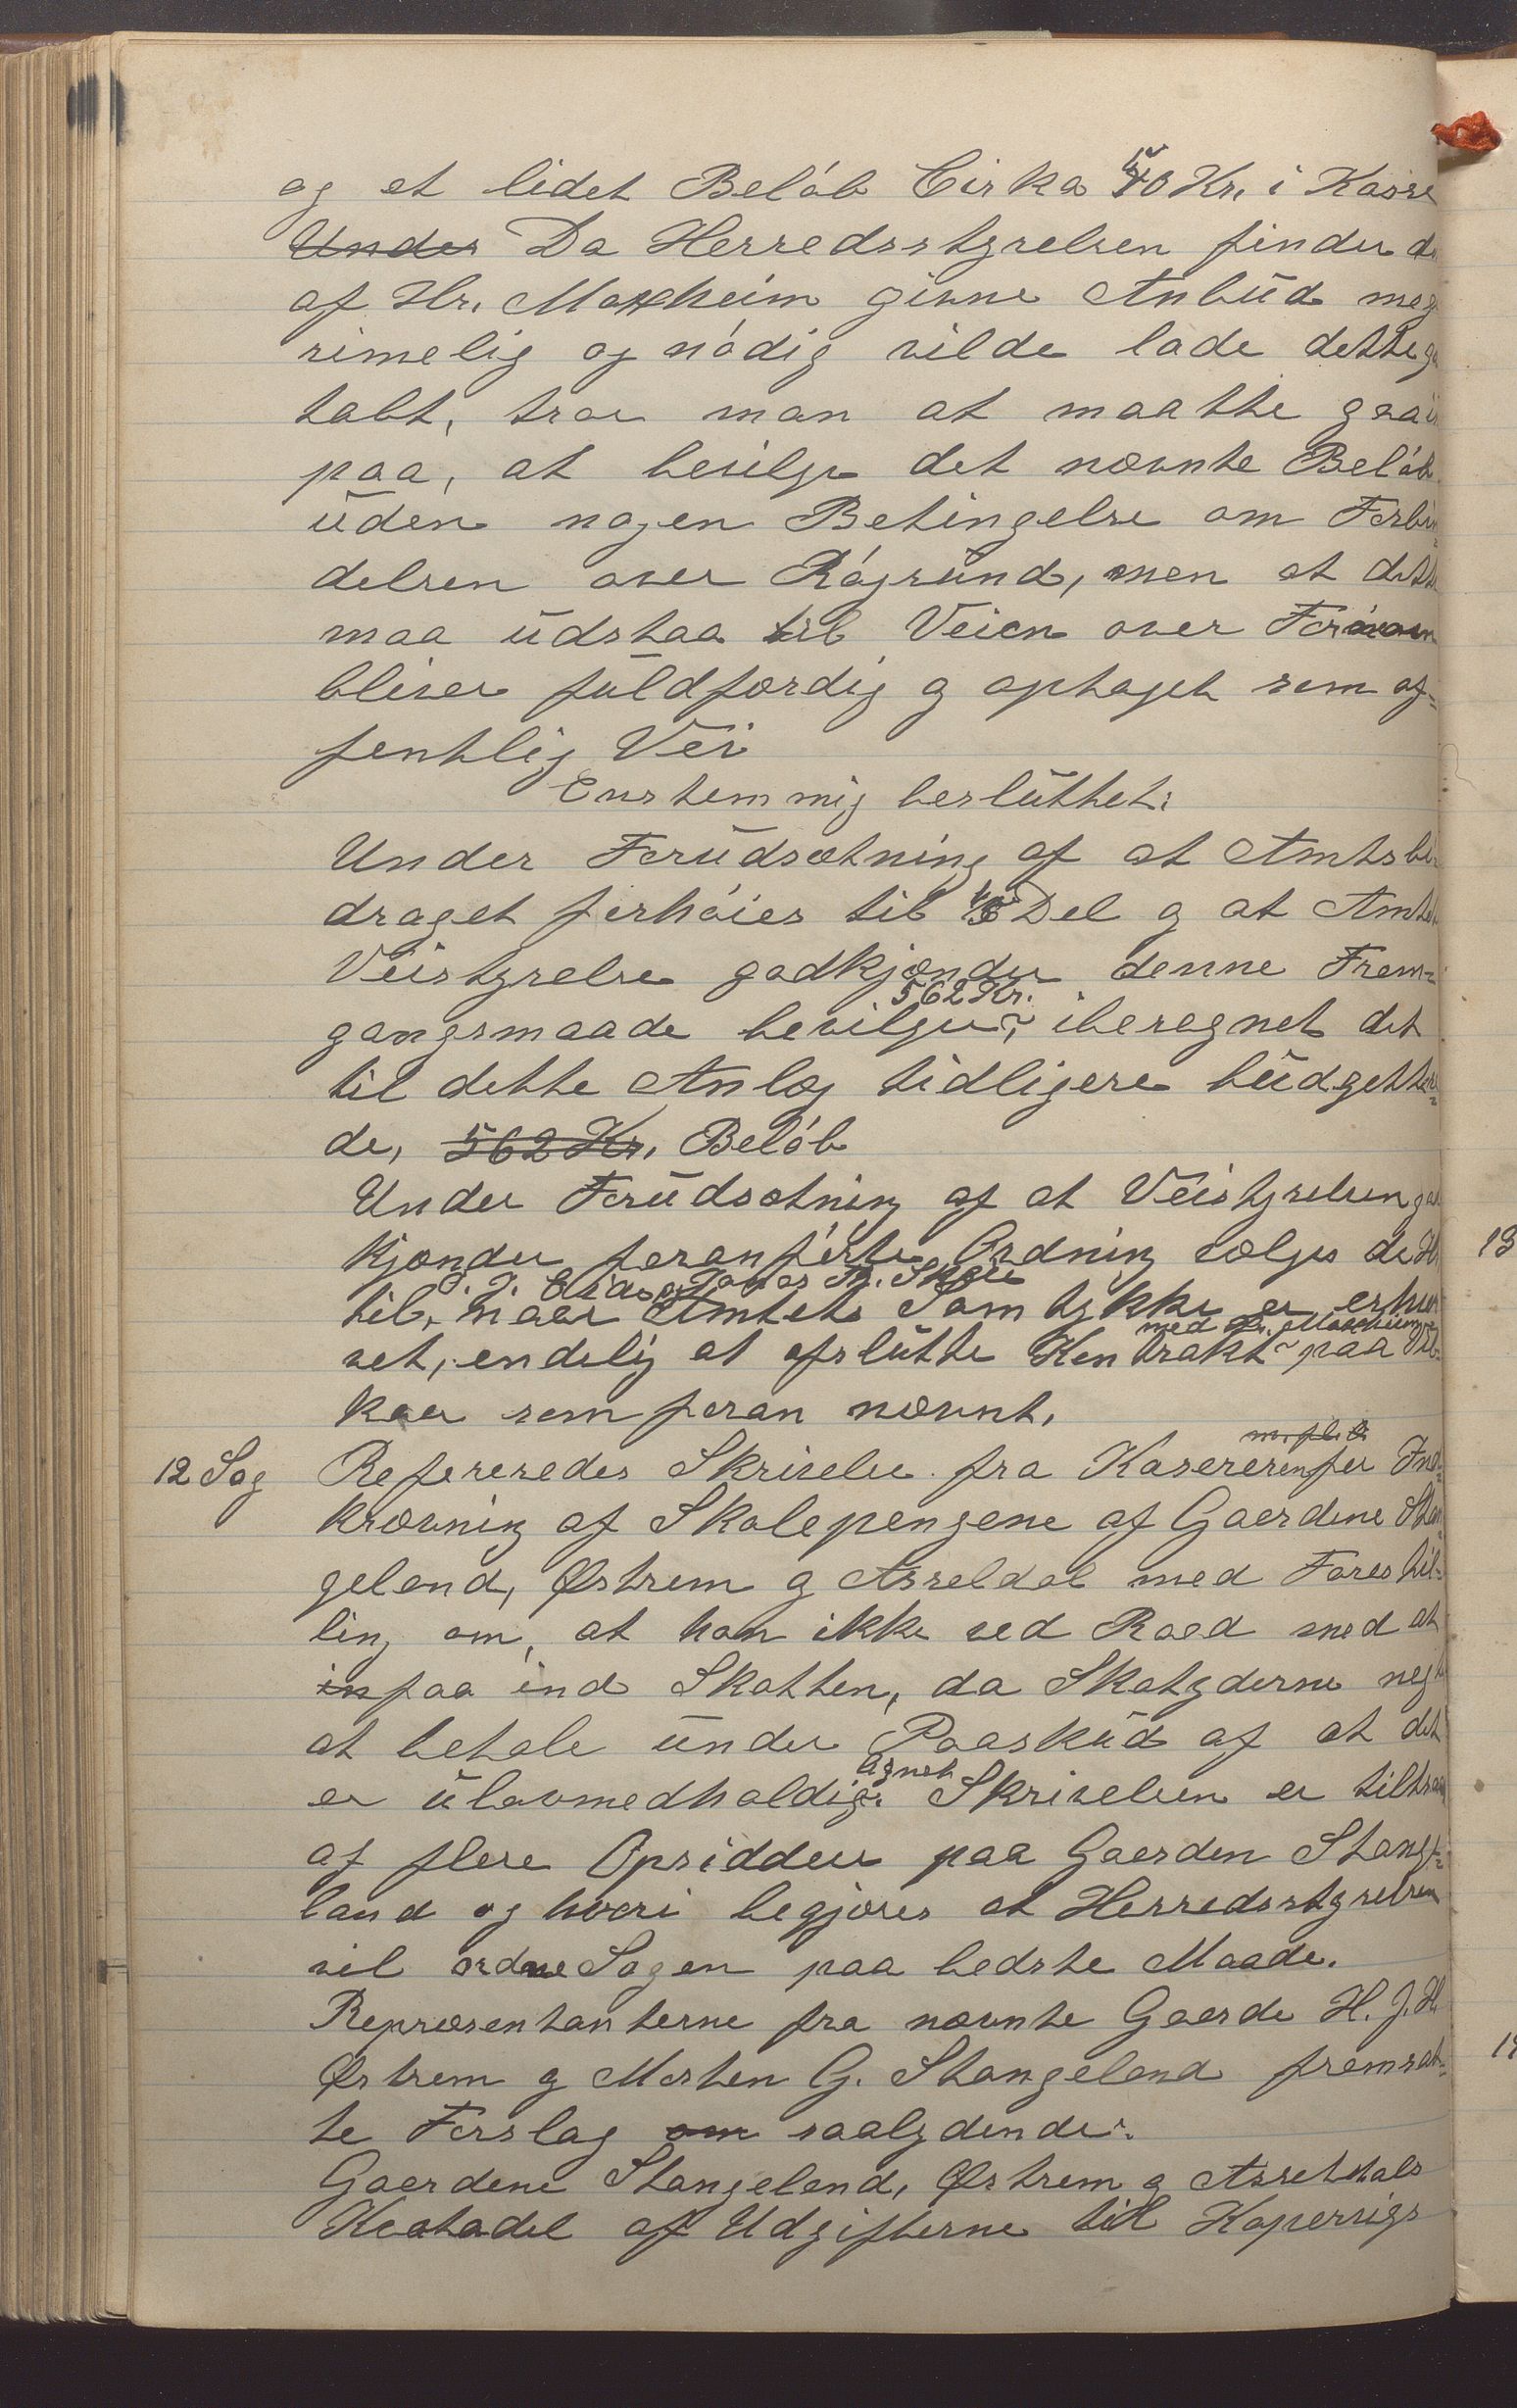 og et lidet Beløb Cirka 40 Kr. i Kasse
Under Da Herredsstyrelsen finder de
af Hr. Maxheim givne Anbud meg
rimelig og nødig vilde lade dette ga
tabt, tror man at maatte gaa i
paa, at bevilge det nævnte Beløb
uden nogen Betingelse om Forbin-
delsen over Røgsund, men at dette
maa udstaa til Veien over
bliver fuldfærdig og optaget som of-
fentlig Vei
Enstemmig besluttet:
Under Forudsætning af at Amtsbi-
draget forhøies til Del og at Amtets
Veistyrelse godkjender denne Frem-
562 Kr.
gangsmaade bevilges, iberegnet det
til dette Anlæg tidligere budgetter-
de, 562 Kr. Beløb
Under Forudsætning af at Veistyrelsen god
kjender foranførte Ordning vælges de H
J. J. Eide og Jonas Th. Skeie
til, naar Amtets Samtykke er erhver
med Hr. Maxheim
vet, endelig at afslutte Kontrakt paa Vil-
kaar som foran nævnt.
m. fl. B.
12 Sag Refereredes Skrivelse fra Kasereren for Ind-
krævning af Skolepengene af Gaardene Stan-
geland, Østrem og Asseldal med Forestil-
ling om, at han ikke ved Raad med at
in faa ind Skatten, da Skatyderne negt
at betale under Paaskud af at det
Agnet
er ulovmedholdig. Skrivelsen er tiltraa
af flere Opsiddere paa Gaarden Stange-
land og hvori begjæres at Herredsstyrelsen
vil ordne Sagen paa bedste Maade.
Repræsentanterne fra nævnte Gaarde H. J. H.
Østrem og Morten G. Stangeland fremsat-
te Forslag om saalydende:
Gaardene Stangeland, Østrem og Asseldals
Kvotadel af Udgifterne til Kopervigs
13